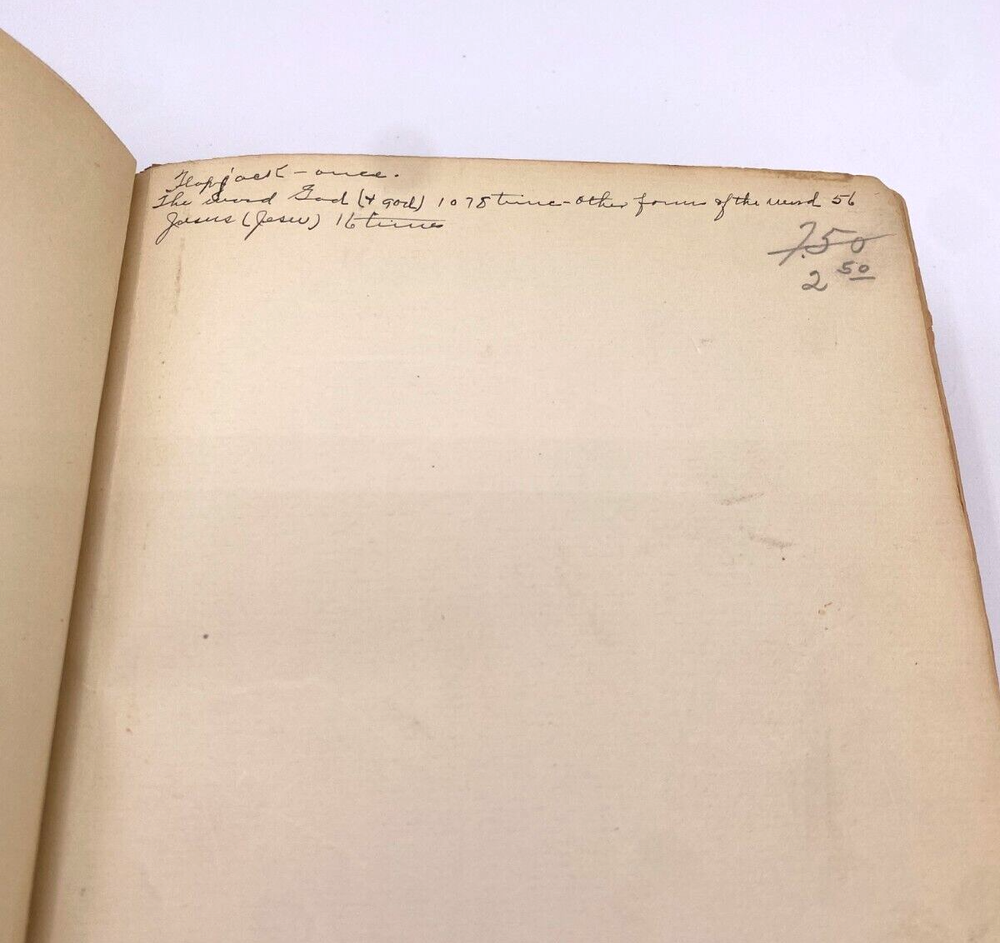 Flapjack - once.
The word God (& god) 1078 time - other forms of the word 56
Jesus (Jesu) 16 times
7.50
2 50